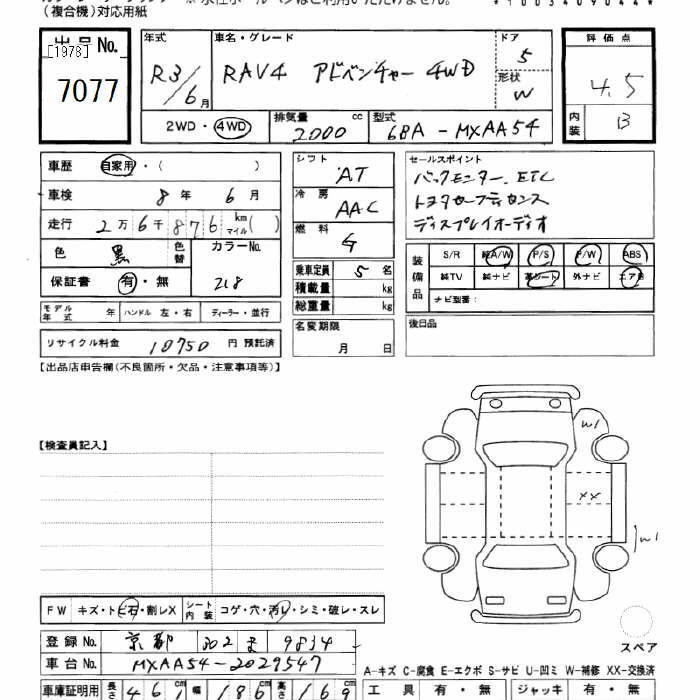 (複合機)対応用紙
出品No.
[1978]
7077
年式 R3/6月
車名・グレード RAV4 アドベンチャー 4WD
ドア 5
形状 W
評価点 4.5
内装 B
2WD・4WD
排気量 2000 cc
型式 6BA-MXAA54
車歴 自家用・( )
車検 8年 6月
走行 2万6千876 km マイル( )
色 黒 色替
カラーNo. 218
保証書 有・無
シフト AT
冷房 AAC
燃料 G
乗車定員 5名
積載量 kg
総重量 kg
名変期限 月 日
セールスポイント
バックモニター、ETC
トヨタセーフティセンス
ディスプレイオーディオ
装備品
S/R 純A/W P/S P/W ABS
純TV 純ナビ 革シート 外ナビ エアB
ナビ型番:
後日品
モデル年式 年 ハンドル 左・右 ディーラー・並行
リサイクル料金 10750 円 預託済
【出品店申告欄(不良箇所・欠品・注意事項等)】
【検査員記入】
W1
XX
W1
スペア
FW キズ・トビ石・割レX シート内装 コゲ・穴・汚レ・シミ・破レ・スレ
登録No. 京都 302 ま 9834
車台No. MXAA54-2029547
A-キズ C-腐食 E-エクボ S-サビ U-凹ミ W-補修 XX-交換済
車庫証明用 長さ 461cm 幅 186cm 高さ 169cm
工具 有・無 ジャッキ 有・無